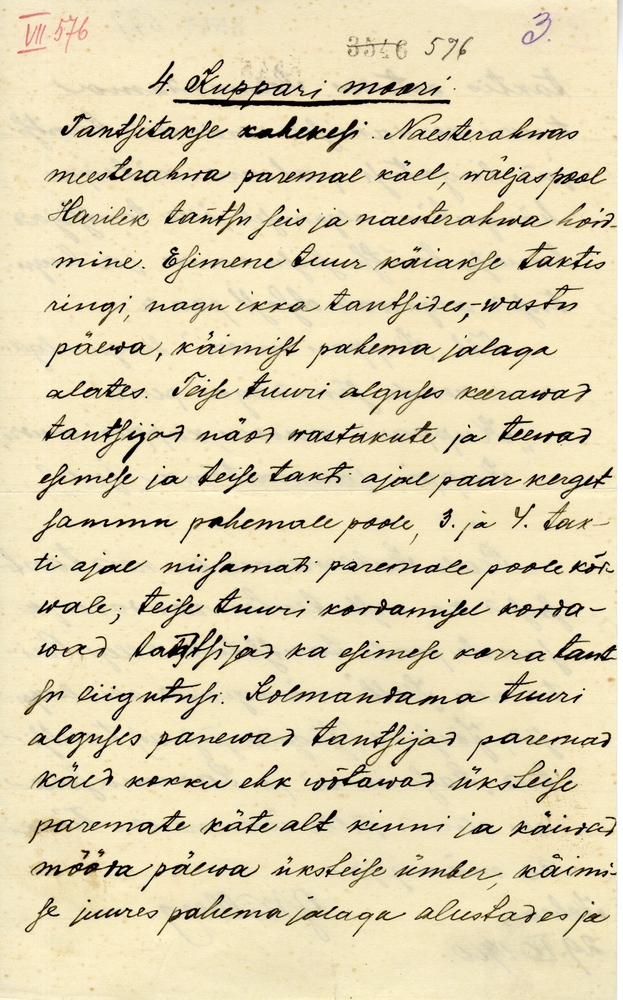 VII 576
3546 576
3.
4. Kuppari moori.
Tantsitakse kahekesi. Naesterahwas
meesterahwa paremal käel, wäljaspool
Harilik tantsu seis ja naesterahwa hoid-
mine. Esimene tuur käiakse taktis
ringi, nagu ikka tantsides,-wastu
päewa, käimist pahema jalaga
alates. Teise tuuri alguses keerawad
tantsijad näod wastakute ja teewad
esimese ja teise takti ajal paar kerget
sammu pahemale poole, 3. ja 4. tak-
ti ajal niisamati paremale poole kõr-
wale; teise tuuri kordamisel korda-
wad tantsijad ka esimese korra tant
su liigutusi. Kolmandama tuuri
alguses panewad tantsijad paremad
käed kokku ehk wõtawad üksteise
paremate käte alt kinni ja käiwad
mööda päewa üksteise ümber, käimi-
se juures pahema jalaga alustades ja